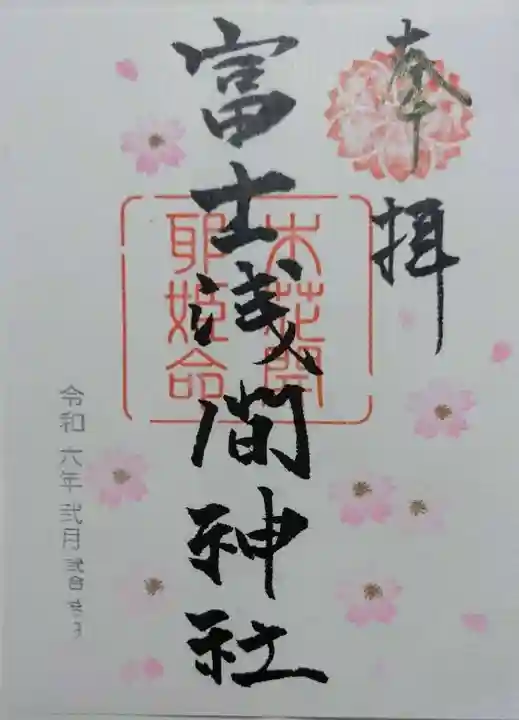 奉拝
富士浅間神社
木花開
耶姫命
令和六年弐月弐